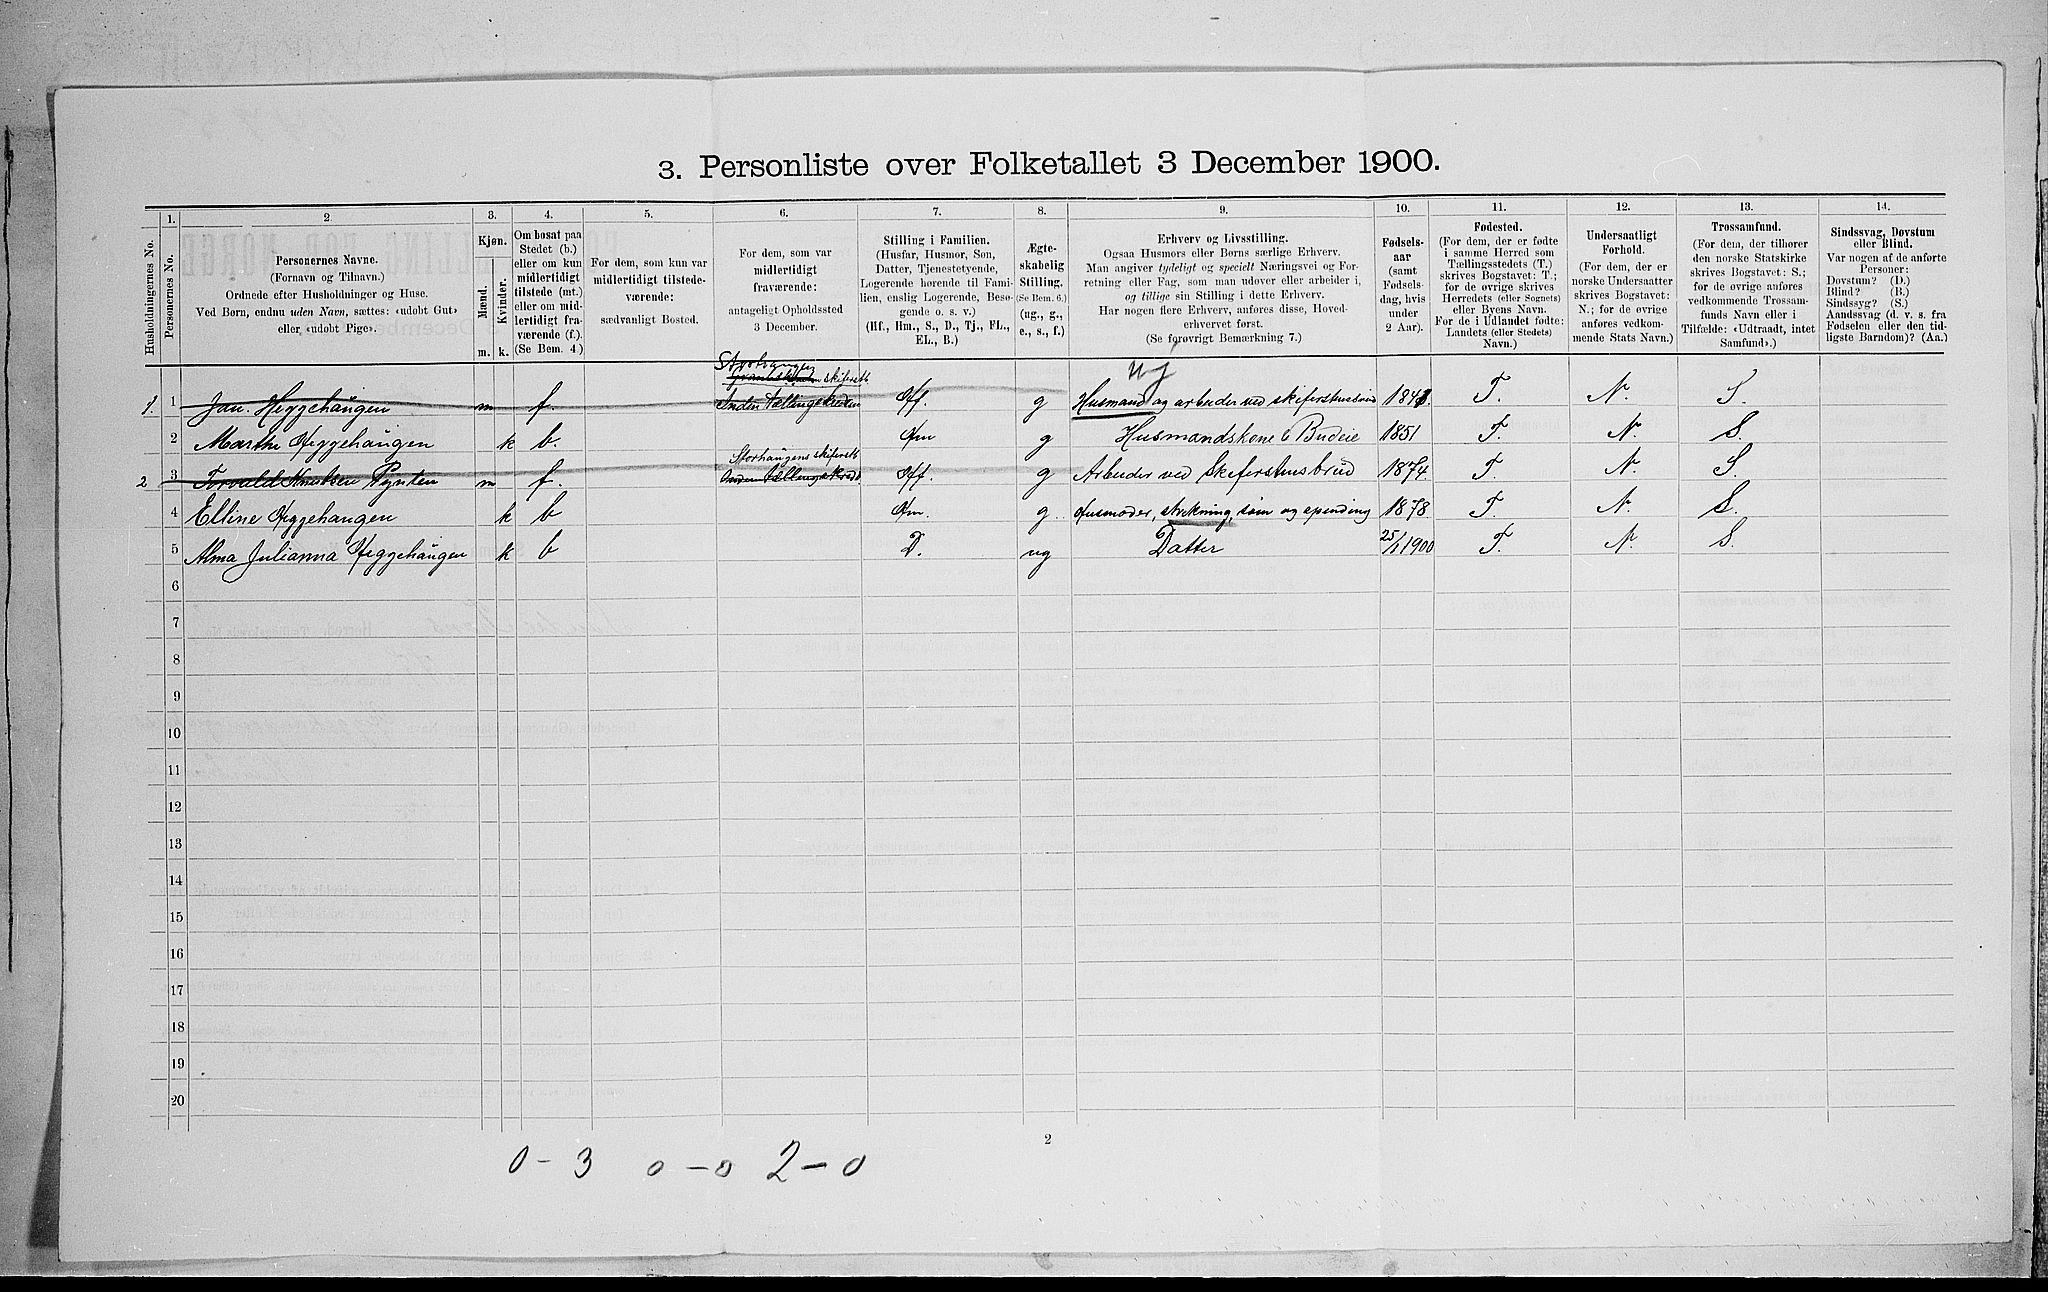 3. Personliste over Folketallet 3 December 1900.
Husholdningernes No.
1.
Personernes No.
2.
Personernes Navne.
(Fornavn og Tilnavn.)
Ordnede efter Husholdninger og Huse.
Ved Børn, endnu uden Navn, sættes: «udobt Gut»
eller «udobt Pige».
3.
Kjøn.
Mænd.
m.
Kvinder.
k.
4.
Om bosat paa
Stedet (b.)
eller om kun
midlertidigt
tilstede (mt.)
eller om mid-
lertidigt fra-
værende (f.).
(Se Bem. 4.)
5.
For dem, som kun var
midlertidigt tilstede-
værende:
sædvanligt Bosted.
6.
For dem, som var
midlertidigt
fraværende:
antageligt Opholdssted
3 December.
7.
Stilling i Familien.
(Husfar, Husmor, Søn,
Datter, Tjenestetyende,
Logerende hørende til Fami-
lien, enslig Logerende, Besø-
gende o. s. v.)
(Hf., Hm., S., D., Tj., FL.,
EL., B.)
8.
Ægte-
skabelig
Stilling.
(Se Bem. 6.)
(ug., g.,
e., s., f.)
9.
Erhverv og Livsstilling.
Ogsaa Husmors eller Børns særlige Erhverv.
Man angiver tydeligt og specielt Næringsvei og For-
retning eller Fag, som man udøver eller arbeider i,
og tillige sin Stilling i dette Erhverv.
Har nogen flere Erhverv, anføres disse, Hoved-
erhvervet først.
(Se forøvrigt Bemærkning 7.)
10.
Fødsels-
aar
(samt
Fødsels-
dag, hvis
under
2 Aar).
11.
Fødested.
(For dem, der er fødte
i samme Herred som
Tællingsstedets (T.)
skrives Bogstavet: T.;
for de øvrige skrives
Herredets (eller Sognets)
eller Byens Navn.
For de i Udlandet fødte:
Landets (eller Stedets)
Navn.)
12.
Undersaatligt
Forhold.
(For dem, der er
norske Undersaatter
skrives Bogstavet:
N.; for de øvrige
anføres vedkom-
mende Stats Navn.)
13.
Trossamfund.
(For dem, der tilhører
den norske Statskirke
skrives Bogstavet: S.;
for de øvrige anføres
vedkommende Trossam-
funds Navn eller i
Tilfælde: «Udtraadt, intet
Samfund».)
14.
Sindssvag, Døvstum
eller Blind.
Var nogen af de anførte
Personer:
Døvstum? (D.)
Blind? (B.)
Sindssyg? (S.)
Aandssvag (d. v. s. fra
Fødselen eller den tid-
ligste Barndom)? (Aa.)
1. 1 Jan. Heggehaugen m f. Inden Tællingskredsen Hf. g Husmand og arbeider ved skiferstensbrud 1841. T. N. S.
2 Marthe Heggehaugen k b. Hm g Husmandskone & Budeie 1851 T. N. S.
Storhaugens skiferstb
2 3 Torvald Knutsen Pynten m f. Inden Tællingskreds. Hf. g Arbeider ved Skiferstensbrud 1874. T. N. S.
4 Elline Heggehaugen k b Hm. g. Husmoder, strikning, søm og spinding 1878. T. N. S.
5 Alma Julianna Heggehaugen k b D. ug Datter 25/1 1900 T. N. S.
6
7
8
9
10
11
12
13
14
15
16
17
18
19
20
2
0 - 3 0 - 0 2 - 0